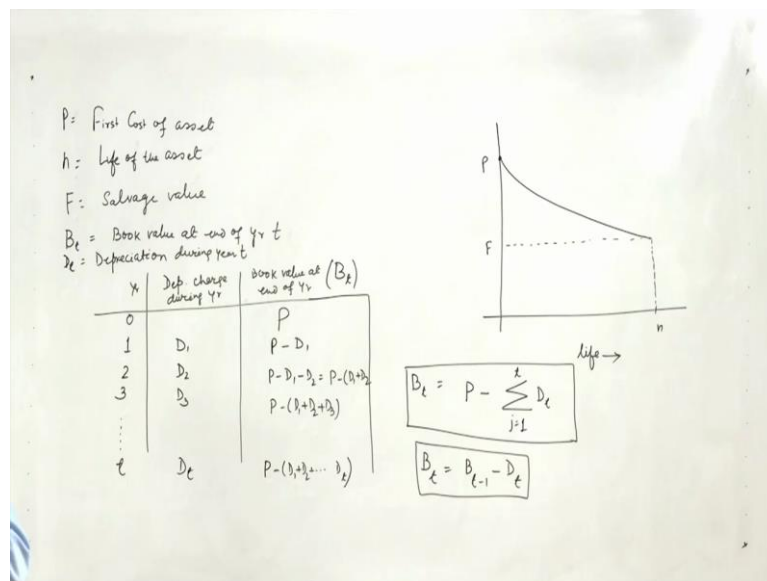 P= First Cost of asset
n= Life of the asset
F= Salvage value
Bt = Book value at end of yr t
Dt = Depreciation during year t
Yr Dep. charge during yr Book value at end of Yr (Bt)
0 P
1 D1 P-D1
2 D2 P-D1-D2 = P-(D1+D2
3 D3 P-(D1+D2+D3)
......
t Dt P-(D1+D2+... Dt)
P
F
n
life→
Bt = P - t∑j=1 Dt
Bt = Bt-1 - Dt